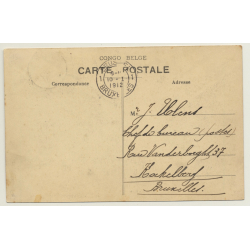 CONGO BELGE
CARTE POSTALE
Correspondance
Adresse
1912
BRUXELLES
Mr J. Uslens
Chef de bureau (postes)
Rue Vanderborght 37
Koekelberg
Bruxelles.